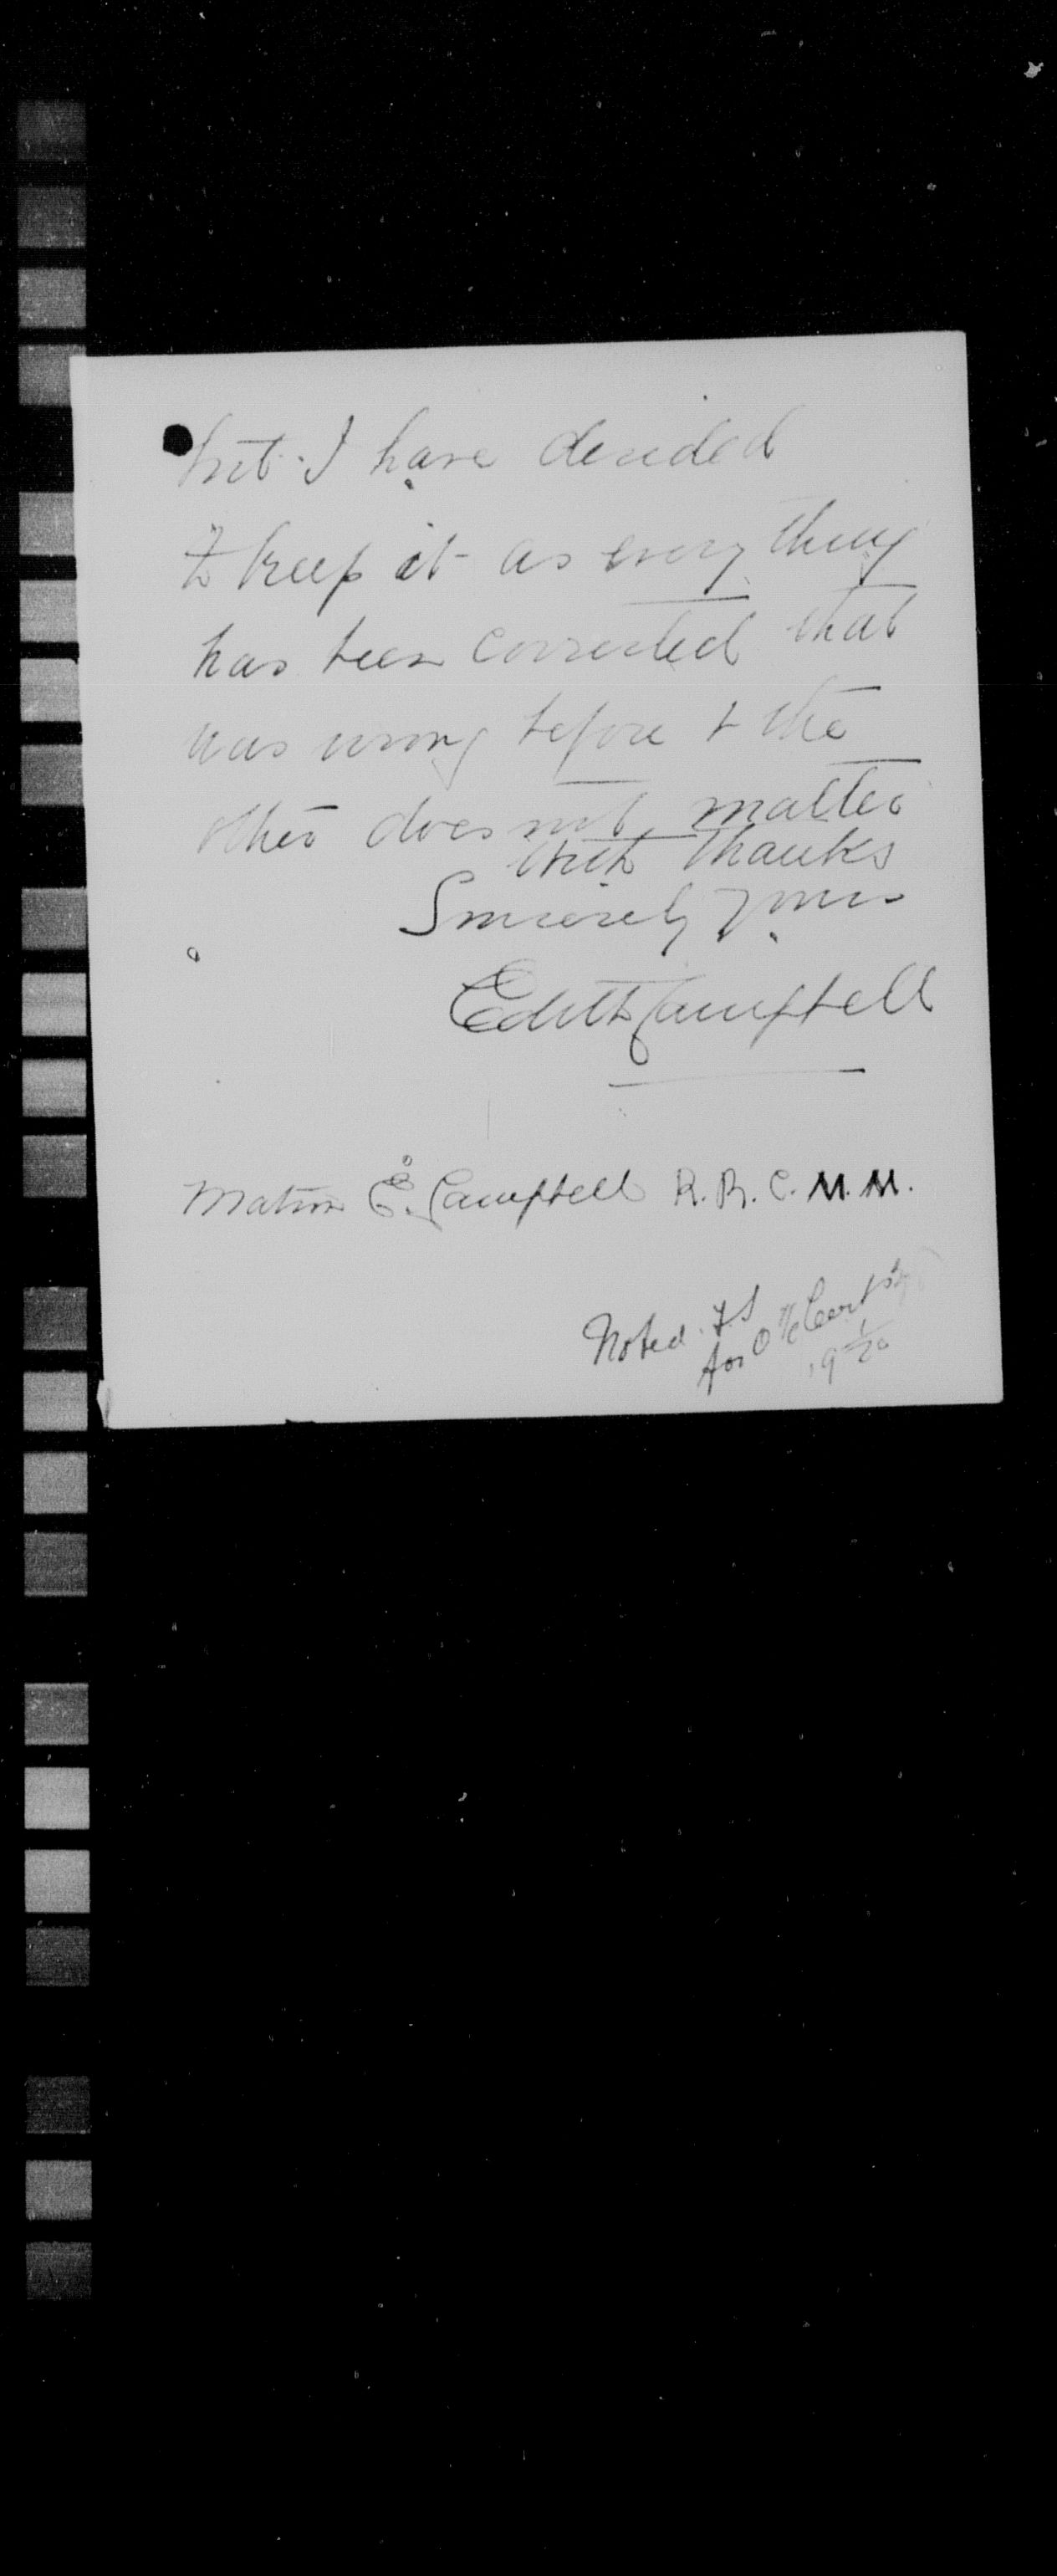 but I have decided
to keep it as every thing
has been corrected that
was wrong before & the
other does not matter
With thanks
Sincerely yours
Edith Campbell
Matron E. Campbell R.R.C. M.M.
Noted
for O i/c